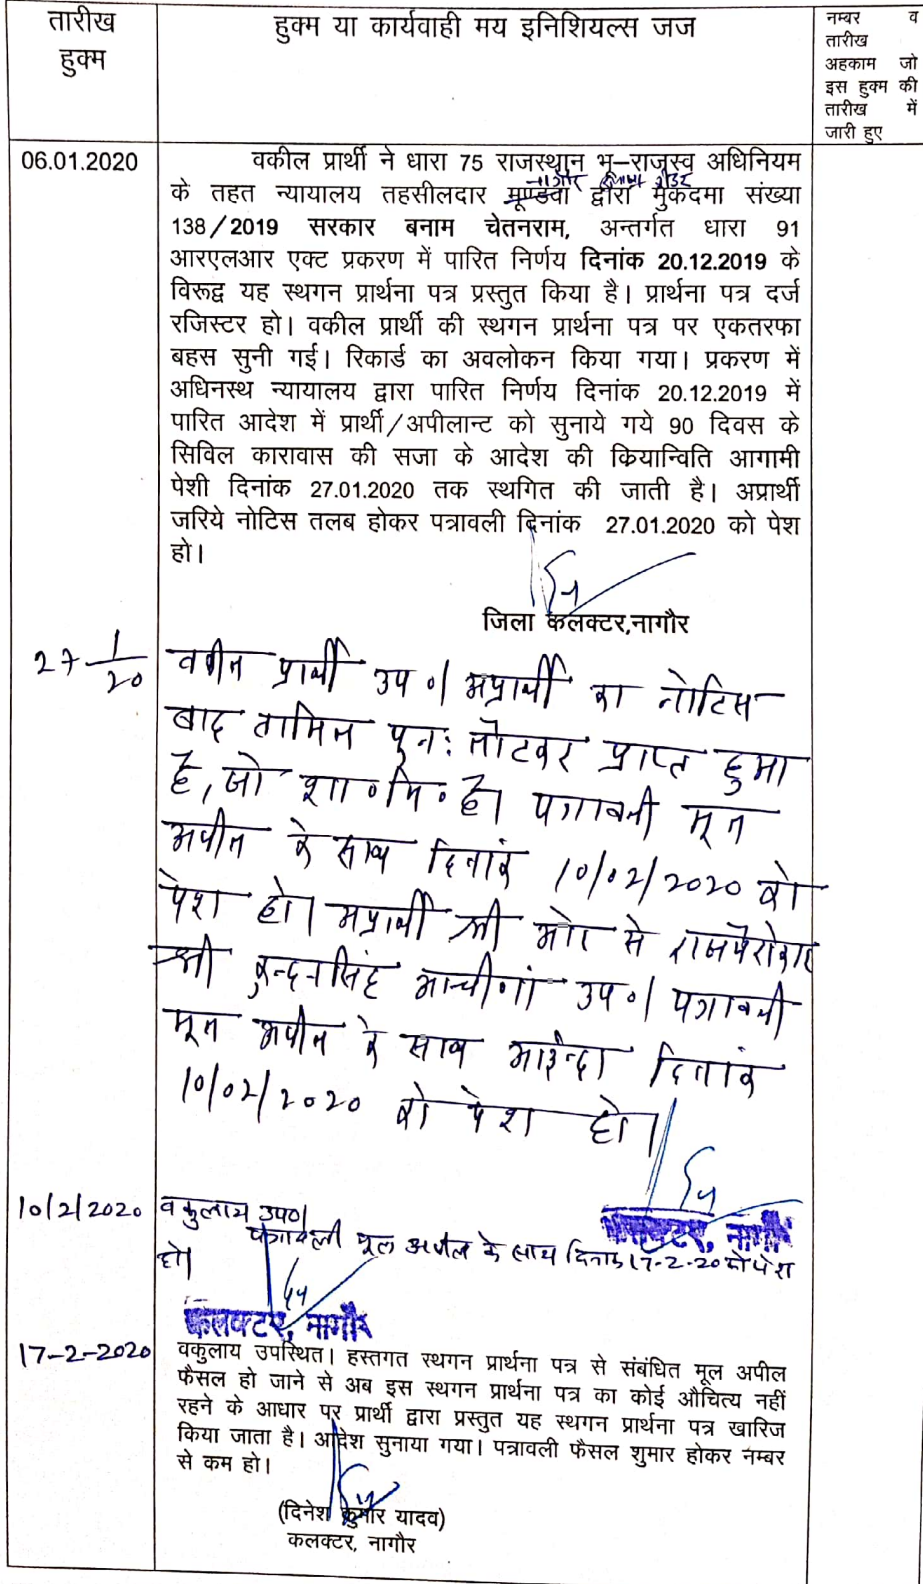 तारीख
हुक्म
हुक्म या कार्यवाही मय इनिशियल्स जज
नम्बर व
तारीख
अहकाम जो
इस हुक्म की
तारीख में
जारी हुए
06.01.2020
वकील प्रार्थी ने धारा 75 राजस्थान भू–राजस्व अधिनियम
नागौर
के तहत न्यायालय तहसीलदार मूण्डवा द्वारा मुकदमा संख्या
138/2019 सरकार बनाम चेतनराम, अन्तर्गत धारा 91
आरएलआर एक्ट प्रकरण में पारित निर्णय दिनांक 20.12.2019 के
विरूद्व यह स्थगन प्रार्थना पत्र प्रस्तुत किया है। प्रार्थना पत्र दर्ज
रजिस्टर हो। वकील प्रार्थी की स्थगन प्रार्थना पत्र पर एकतरफा
बहस सुनी गई। रिकार्ड का अवलोकन किया गया। प्रकरण में
अधिनस्थ न्यायालय द्वारा पारित निर्णय दिनांक 20.12.2019 में
पारित आदेश में प्रार्थी/अपीलान्ट को सुनाये गये 90 दिवस के
सिविल कारावास की सजा के आदेश की कियान्विति आगामी
पेशी दिनांक 27.01.2020 तक स्थगित की जाती है। अप्रार्थी
जरिये नोटिस तलब होकर पत्रावली दिनांक 27.01.2020 को पेश
हो।
जिला कलक्टर,नागौर
27 1/20
वकील प्रार्थी उप०। अप्रार्थी का नोटिस
बाद तामिल पुन: लौटकर प्राप्त हुआ
है, जो शा०मि० है। पत्रावली मूल
अपील के साथ दिनांक 10/02/2020 को
पेश हो। अप्रार्थी की ओर से राजपैरोकार
श्री कुन्दनसिंह आचीणा उप०। पत्रावली
मूल अपील के साथ आईन्दा दिनांक
10/02/2020 को पेश हो।
कलक्टर, नागौर
10/2/2020
वकुलाय उप०।
पत्रावली मूल अपील के साथ दिनांक 17-2-20 को पेश
हो।
कलक्टर, नागौर
17-2-2020
वकुलाय उपस्थित। हस्तगत स्थगन प्रार्थना पत्र से संबंधित मूल अपील
फैसल हो जाने से अब इस स्थगन प्रार्थना पत्र का कोई औचित्य नहीं
रहने के आधार पर प्रार्थी द्वारा प्रस्तुत यह स्थगन प्रार्थना पत्र खारिज
किया जाता है। आदेश सुनाया गया। पत्रावली फैसल शुमार होकर नम्बर
से कम हो।
(दिनेश कुमार यादव)
कलक्टर, नागौर